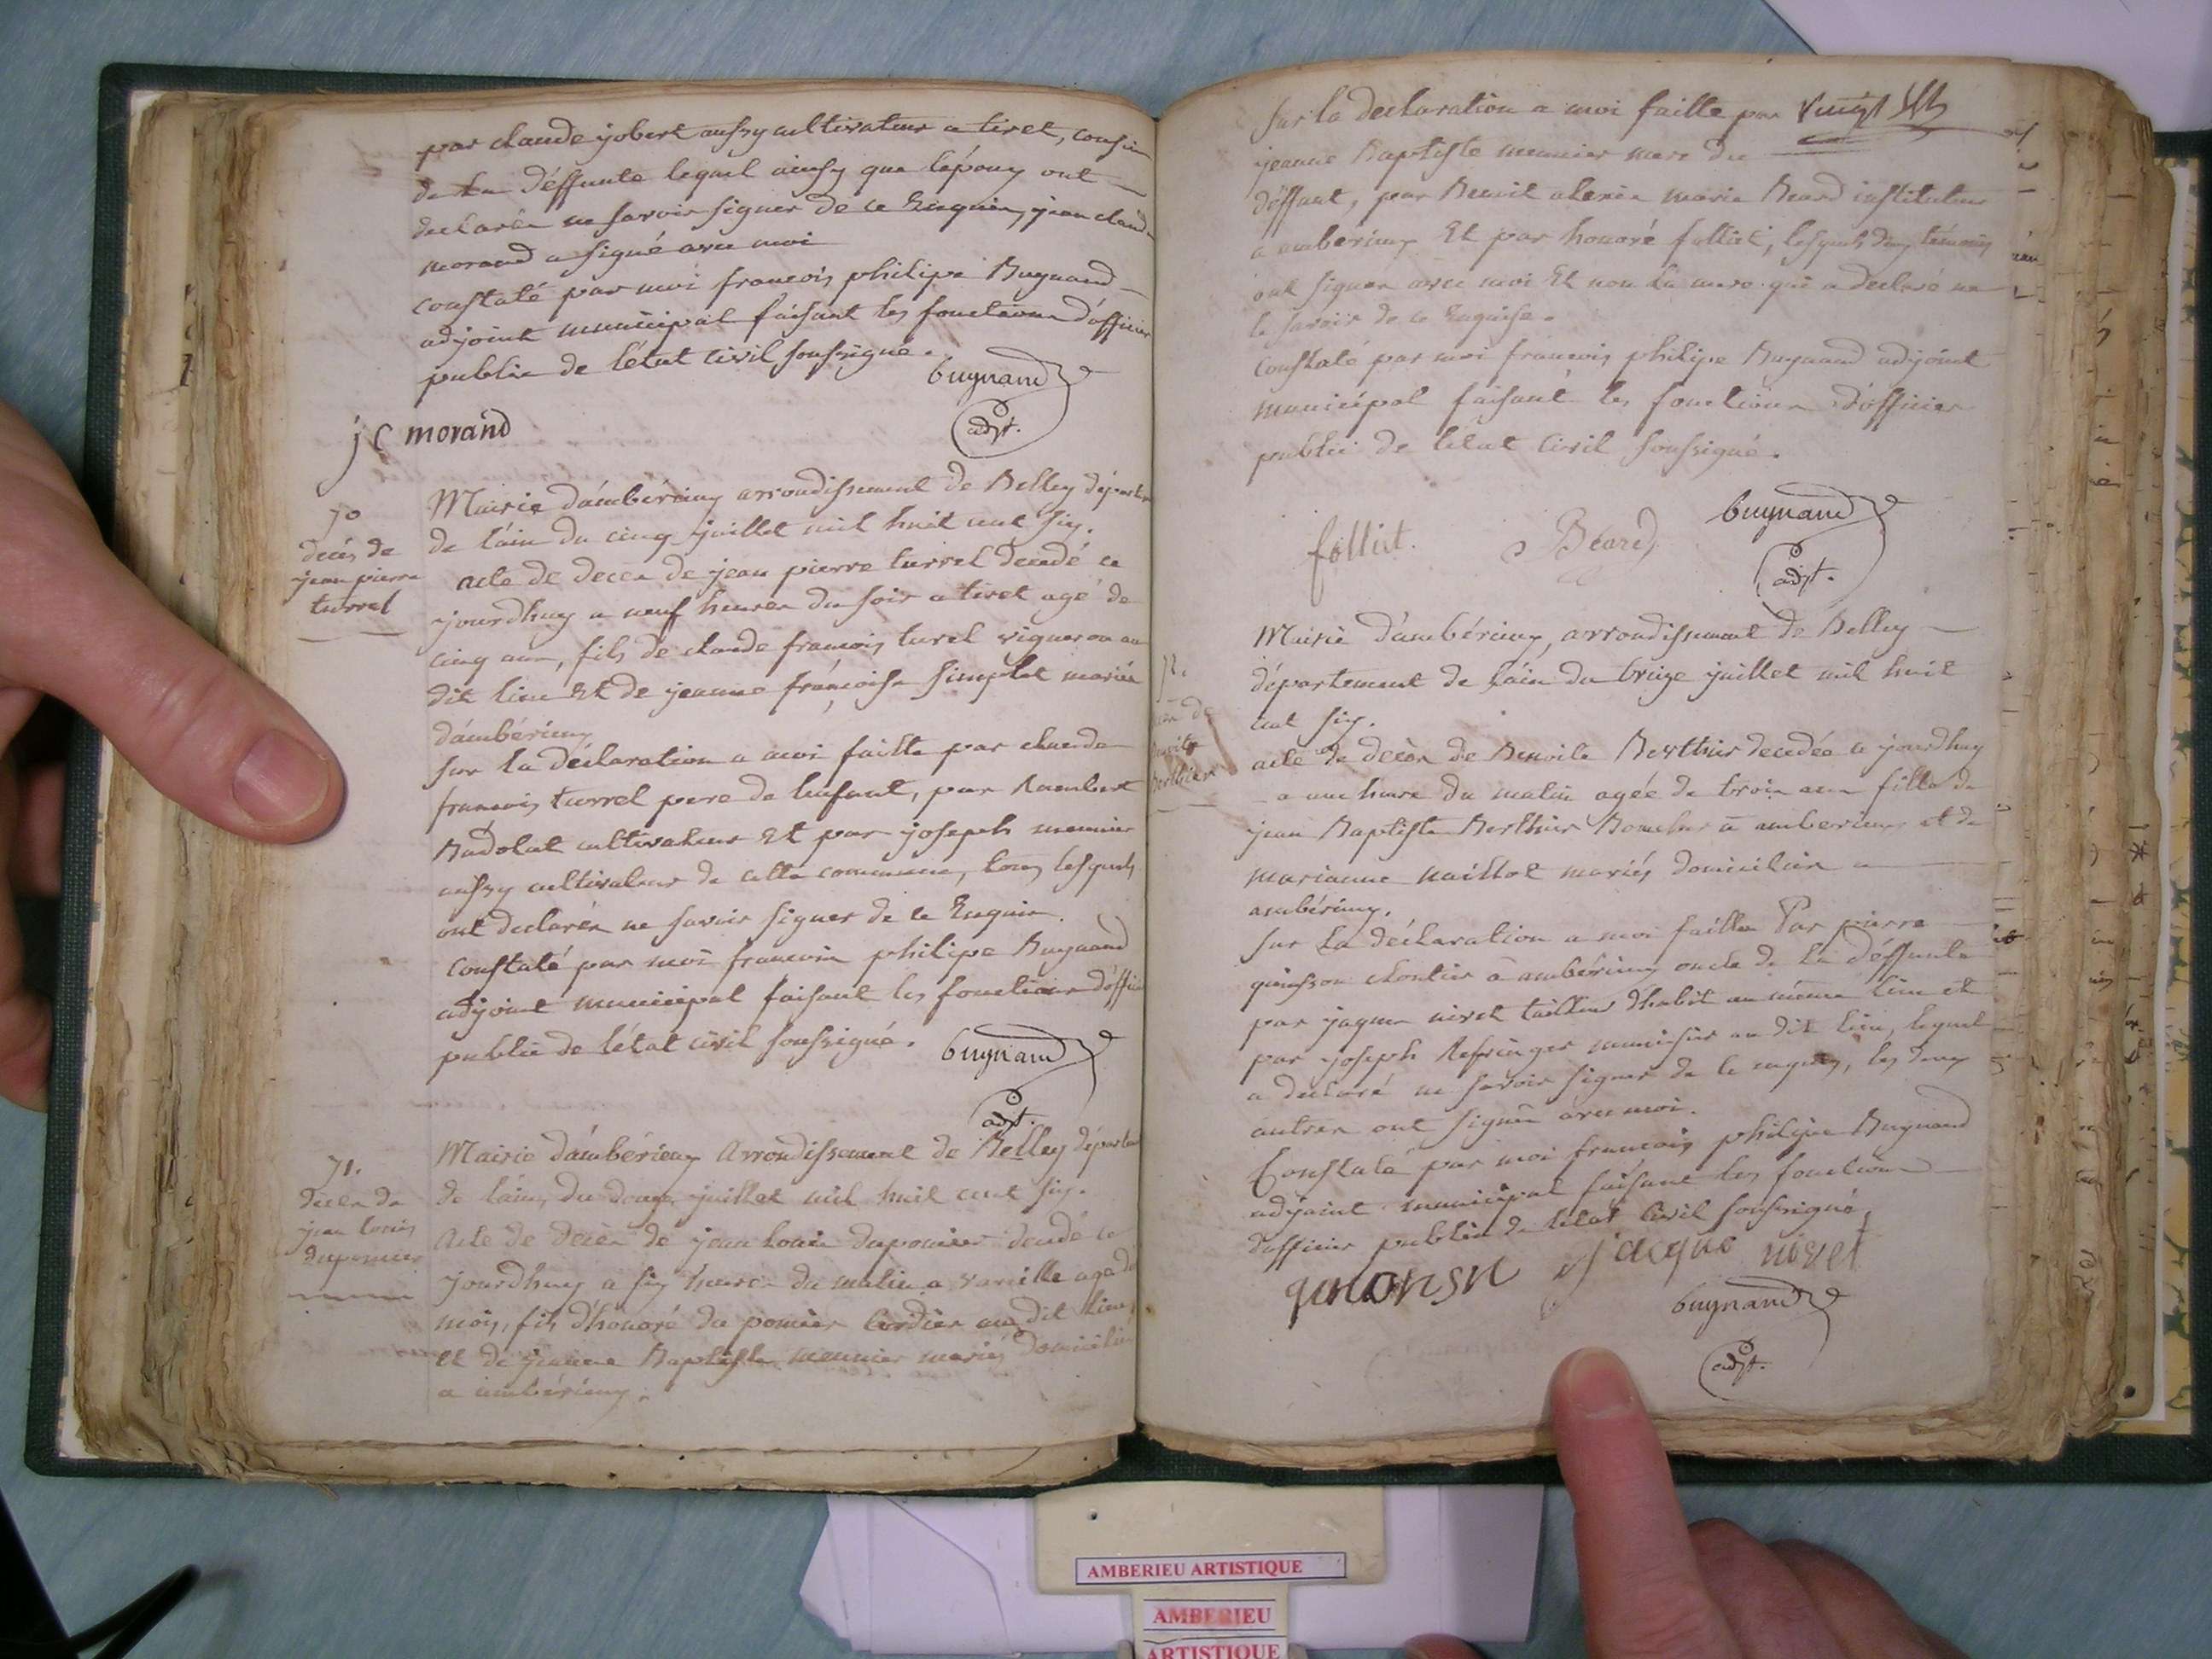 par claude jobert aussy cultivateur a tiret, cousin
de la déffunte lequel ainsy que lépoux ont
declarés ne savoir signer de ce Enquis, jean claude
morand a signé avec moi
constaté par moi francois philipe Bugnand
adjoint municipal faisant les fonctions d'officier
public de létat civil soussigné.
bugnand
adjt.
j c morand
70
decès de
jean pierre
turrel
Mairie d'ambérieux arrondissement de Belley départem
de l'ain du cinq juillet mil huit cent six.
acte de decès de jean pierre turrel decedé ce
jourdhuy a neuf heures du soir a tiret agé de
cinq ans, fils de claude francois turel vigneron au
dit lieu Et de jeanne françoise simplet mariés
d'ambérieux
sur la déclaration a moi faitte par claude
francois turrel pere de lenfant, par Rambert
Badolat cultivateur Et par joseph meunier
aussy cultivateur de cette commune, tous lesquels
ont declarés ne savoir signer de ce Enquis.
constaté par moi francois philipe Bugnand
adjoint municipal faisant les fonctions d'officier
public de létat civil soussigné.
bugnand
adjt.
71.
decès de
jean louis
duponier
Mairie d'ambérieux Arrondissement de Belley départem
de l'ain, du douze juillet mil huit cent six.
Acte de decès de jean louis duponier decedé ce
jourdhuy a six heures du matin a vareille agé de
mois, fils d'honoré du ponier cordier au dit lieu
et de jeanne Baptiste meunier mariés domiciliés
a ambérieux.
sur la declaration a moi faitte par
jeanne Baptiste meunier mere du
déffunt, par Benoit alexis marie Beard instituteur
a ambérieux Et par honoré folliet, lesquels deux témoins
ont signés avec moi Et non la mere qui a declaré ne
le savoir de ce Enquise.
constaté par moi francois philipe Bugnand adjoint
municipal faisant les fonctions d'officier
public de létat civil soussigné.
folliet.
Béard
bugnand
adjt.
72.
decès de
Benoite
berthier
Mairie d'ambérieux, arrondissement de Belley
département de l'ain du treize juillet mil huit
cent six.
acte de decès de Benoite Berthier decedée ce jourdhuy
a une heure du matin agée de trois ans fille de
jean Baptiste Berthier Boucher a amberieux et de
marianne maillot mariés domiciliés a
ambérieux.
sur la déclaration a moi faitte Par pierre
quinson cloutier a ambérieux oncle de la déffunte
par jaques nivet tailleur d'habit au même lieu et
par joseph Refringer menuisier au dit lieu, lequel
a declaré ne savoir signer de ce enquis, les deux
autres ont signés avec moi.
Constaté par moi francois philipe Bugnand
adjoint municipal faisant les fonctions
dofficier public de létat civil soussigné.
quionsn
jacque nivet
bugnand
adjt.
AMBERIEU ARTISTIQUE
AMBERIEU
ARTISTIQUE